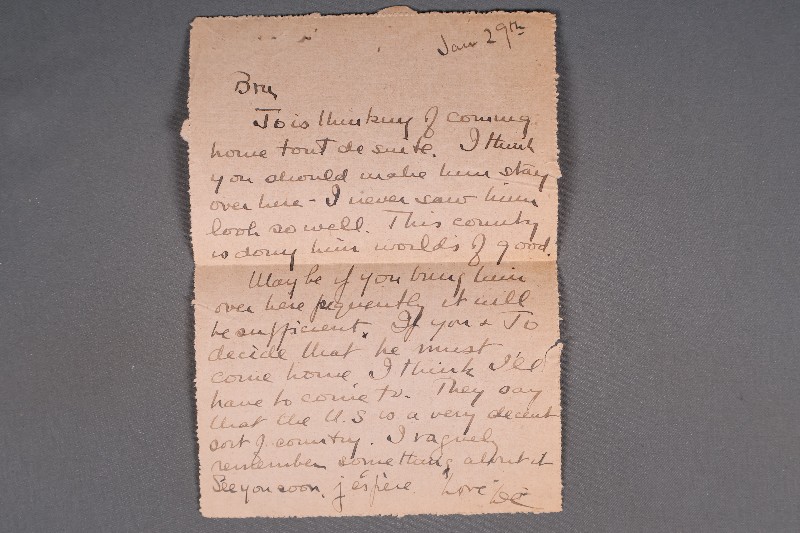 Jan 29th
Bru,
To is thinking of coming
home tout de suite. I think
you should make him stay
over here - I never saw him
look so well. This country
is doing him worlds of good.
Maybe if you bring him
over here frequently it will
be sufficient. If you & To
decide that he must
come home I think I'll
have to come to. They say
that the U.S is a very decent
sort of country. I vaguely
remember something about it
See you soon, j'espère. Love